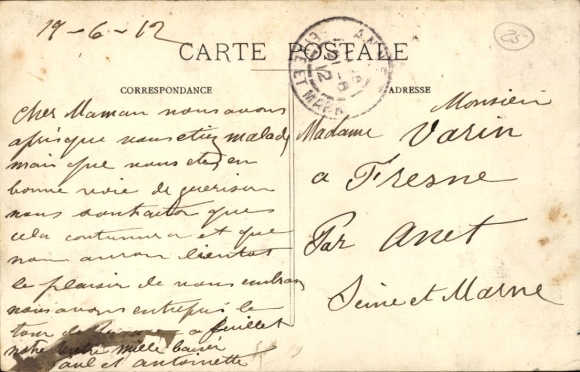 19-6-12
25
CARTE POSTALE
CORRESPONDANCE
ADRESSE
Cher Maman nous avons
apris que vous etiez malade
mais que vous etes en
bonne voie de guerison
nous souhaiton que
cela continura et que
nou auron bientot
le plaisir de vous embras
nous avons entrepris le
tour de
a feuillet
notre lettre mille baiser
Paul et Antoinette
Monsieur
Madame Varin
a Fresne
Par Anet
Seine et Marne
ANNET
SEINE ET MARNE
21 -6
12